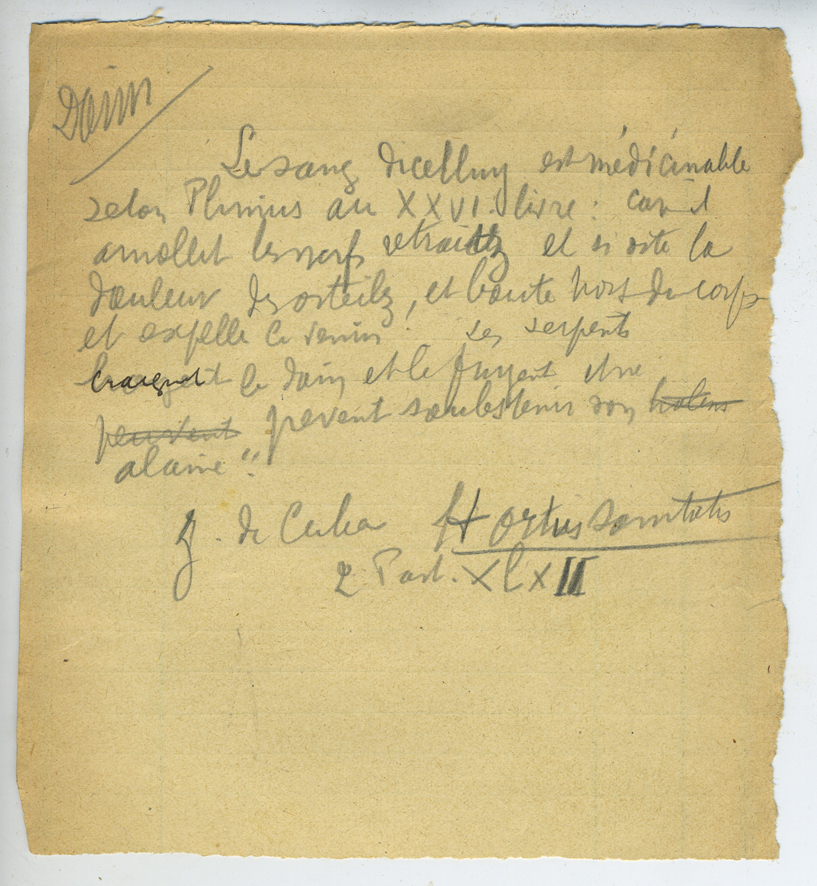 Daim
Le sang dicelluy est médicinable
selon Plinius au XXVI. livre : car il
amollit les nerfs retraittz et si oste la
douleur des orteilz, et boute hors du corps
et expelle le venin. Les serpents
craignent le daim et le fuyent et ne
peuvent pevent soubstenir son halens
alaine".
J. de Cuba Hortus Sanitatis
2 Part. XLXII